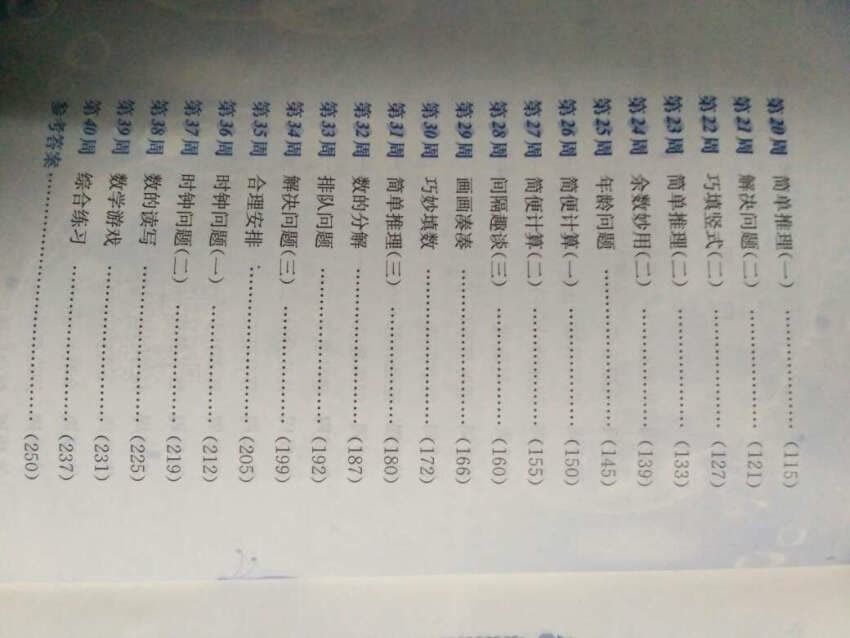 第20周 简单推理(一) ……………… (115)
第21周 解决问题(二) ……………… (121)
第22周 巧填竖式(二) ……………… (127)
第23周 简单推理(二) ……………… (133)
第24周 余数妙用(二) ……………… (139)
第25周 年龄问题 ……………… (145)
第26周 简便计算(一) ……………… (150)
第27周 简便计算(二) ……………… (155)
第28周 间隔趣谈(三) ……………… (160)
第29周 画画凑凑 ……………… (166)
第30周 巧妙填数 ……………… (172)
第31周 简单推理(三) ……………… (180)
第32周 数的分解 ……………… (187)
第33周 排队问题 ……………… (192)
第34周 解决问题(三) ……………… (199)
第35周 合理安排 ……………… (205)
第36周 时钟问题(一) ……………… (212)
第37周 时钟问题(二) ……………… (219)
第38周 数的读写 ……………… (225)
第39周 数学游戏 ……………… (231)
第40周 综合练习 ……………… (237)
参考答案 ……………… (250)